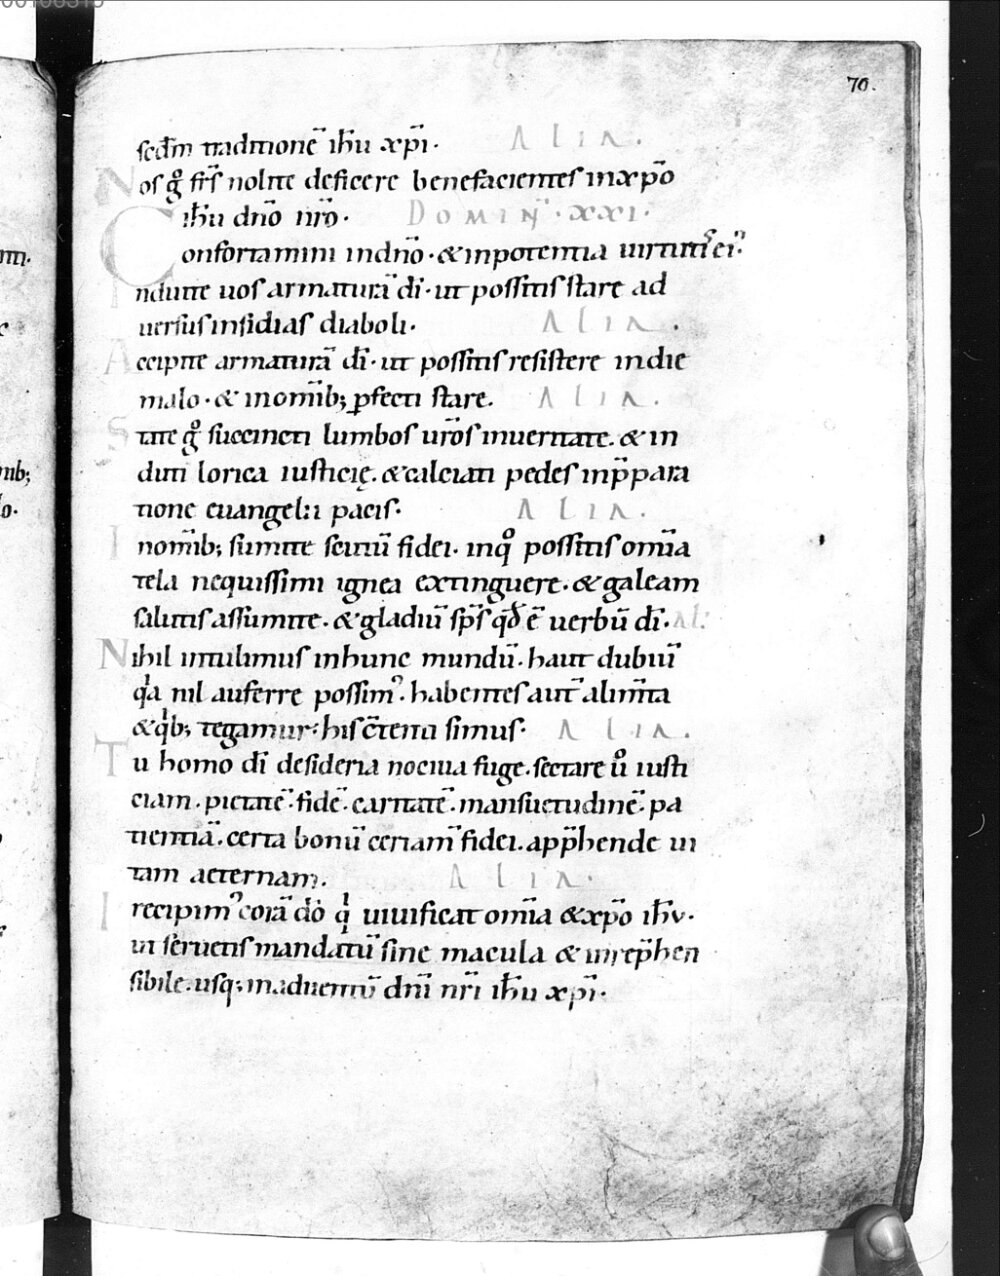 70.
scd̄m traditionē ih̄u xp̄i· ALIA.
Nos gͦ fr̄s nolite deficere benefacientes inxp̄o
ih̄u dn̄o nr̄o· DOMIN̄·XXI·
Confortamini indn̄o·&inpotentia uirtutiſ ei᾽·
Induite uos armaturā dī·ut possitis stare ad
uersus insidias diaboli· ALIA.
Accipite armaturā dī·ut possitis resistere indie
malo·& inom̄ib; ꝑfecti stare. ALIA.
State gͦ succincti lumbos ur̄os inueritate.&in
duti lorica iusticię.&calciati pedes inp̄para
tione euangelii pacis· ALIA.
Inom̄ib; sumite scutū fidei·inqͦ possitis om̄ia
tela nequissimi ignea extinguere·&galeam
salutis assumite·&gladiū sp̄s qđ ē uerbū dī·AL:
Nihil intulimus inhunc mundū·haut dubiū
qͣa nil auferre possim᾽·habentes aut̄ alim̄ta
&qͥb; tegamur:his c̄tenti simus· ALIA.
Tu homo dī desideria nociua fuge·sectare ū iusti
ciam·pietatē·fidē·caritatē·mansuetudinē·pa
tientiā·certa bonū certam̄ fidei·app̄hende ui
tam aeternam. ALIA·
Irecipim᾽ corā dō qͥ uiuificat om̄ia &xp̄o ih̄v·
ut seruetis mandatū sine macula & inrep̄hen
sibile·usq;inaduentū dn̄i nr̄i ih̄u xp̄i·